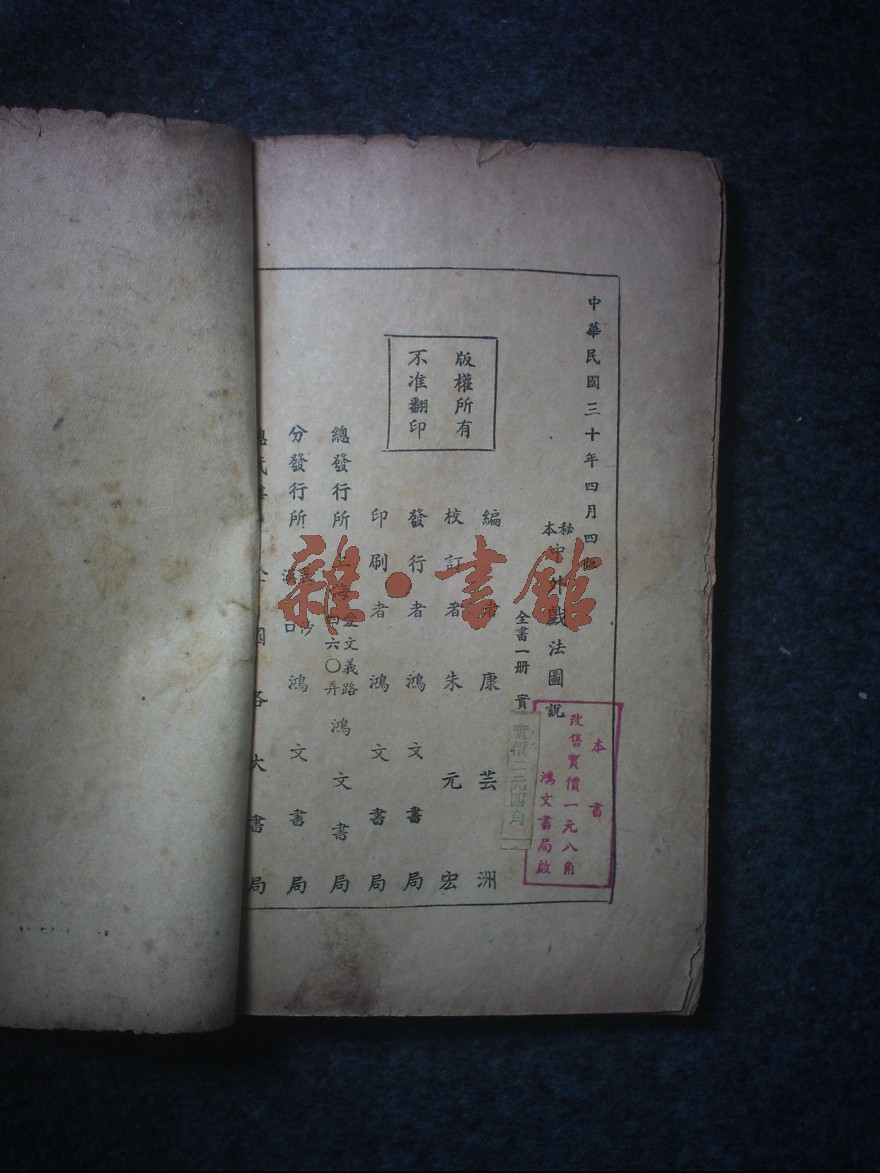 中華民國三十年四月四版
秘本中外戲法圖說
全書一册 實
實價二元四角
本書
改售實價一元八角
鴻文書局啟
版權所有
不准翻印
編者 康芸洲
校訂者 朱元宏
發行者 鴻文書局
印刷者 鴻文書局
總發行所 上海愛文義路四六〇弄 鴻文書局
分發行所 長沙漢口 鴻文書局
全國各大書局
雜·書館